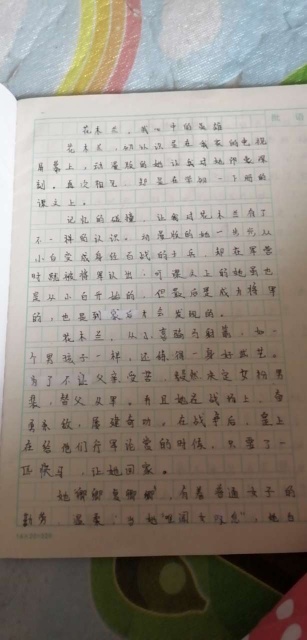 花木兰，我心中的英雄
花木兰，初认识是在我家的电视
屏幕上，动漫版的她让我对她印象深
刻。再次相见，却是在学加一下册的
课文上。
记忆的碰撞，让我对花木兰有了
不一样的认识。动漫版的她一步步从
小白变成身经百战的士兵，却在军营
时就被将军认出；可课文上的她虽也
是从小白开始的，但最后是成为将军
的，也是到家后才发现的。
花木兰，从小喜骑马射箭，如一
个男孩子一样，还练得一身好武艺。
为了不让父亲受苦，毅然决定女扮男
装，替父从军。而且她在战场上，奋
勇杀敌，屡建奇功。在战争后，皇上
在给他们行军论赏的时候，只要了一
匹快马，让她回家。
她有着普通女子的
勤劳、温柔